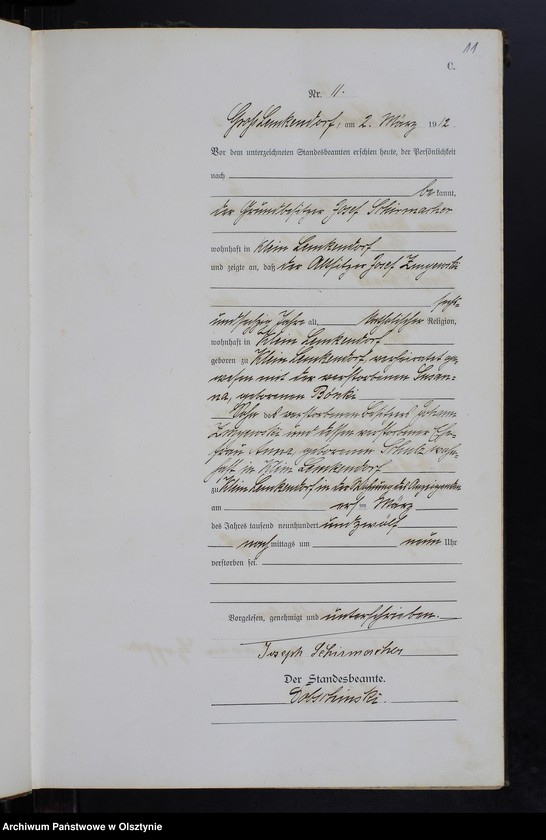 11
C.
Nr. 11.
Groß Lemkendorf, am 2. März 1912.
Vor dem unterzeichneten Standesbeamten erschien heute, der Persönlichkeit
nach
be kannt,
der Grundbesitzer Josef Schirmacher
wohnhaft in Klein Lemkendorf
und zeigte an, daß der Altsitzer Josef
undsechzig Jahre alt, katholischer Religion,
wohnhaft in Klein Lemkendorf
geboren zu Klein Lemkendorf, verheiratet ge-
wesen mit der verstorbenen Susan-
na, geborenen
Sohn des verstorbenen Besitzers Johann
und dessen verstorbener Ehe-
frau Anna, geborenen Schulz wohn-
haft in Klein Lemkendorf
zu Klein Lemkendorf in der Wohnung des Anzeigenden
am ersten März
des Jahres tausend neunhundert undzwölf
nach mittags um neun Uhr
verstorben sei.
Vorgelesen, genehmigt und unterschrieben.
Joseph Schirmacher
Der Standesbeamte.
Archiwum Państwowe w Olsztynie